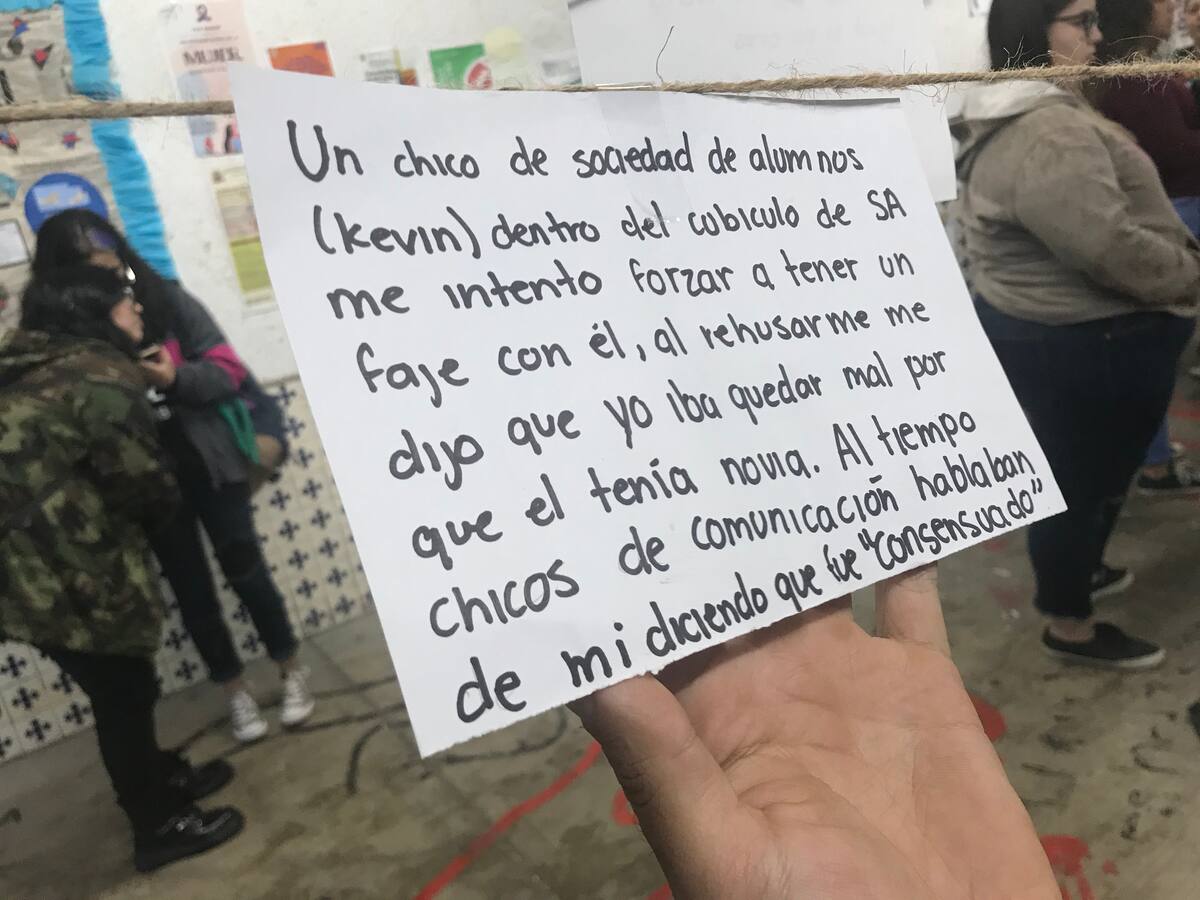 Un chico de sociedad de alumnos
(kevin) dentro del cubiculo de SA
me intento forzar a tener un
faje con él, al rehusarme me
dijo que yo iba quedar mal por
que el tenía novia. Al tiempo
chicos de comunicación hablaban
de mi diciendo que fue "consensuado"
MUJER